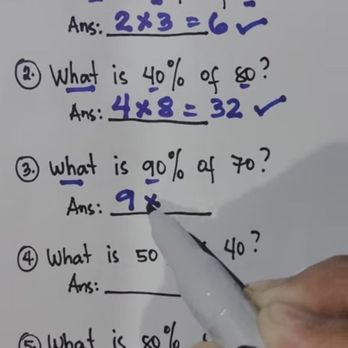 Ans: 2 x 3 = 6 ✓
② What is 40% of 80?
Ans: 4 x 8 = 32 ✓
③ What is 90% of 70?
Ans: 9 x
④ What is 50 40?
Ans:
What is 80%